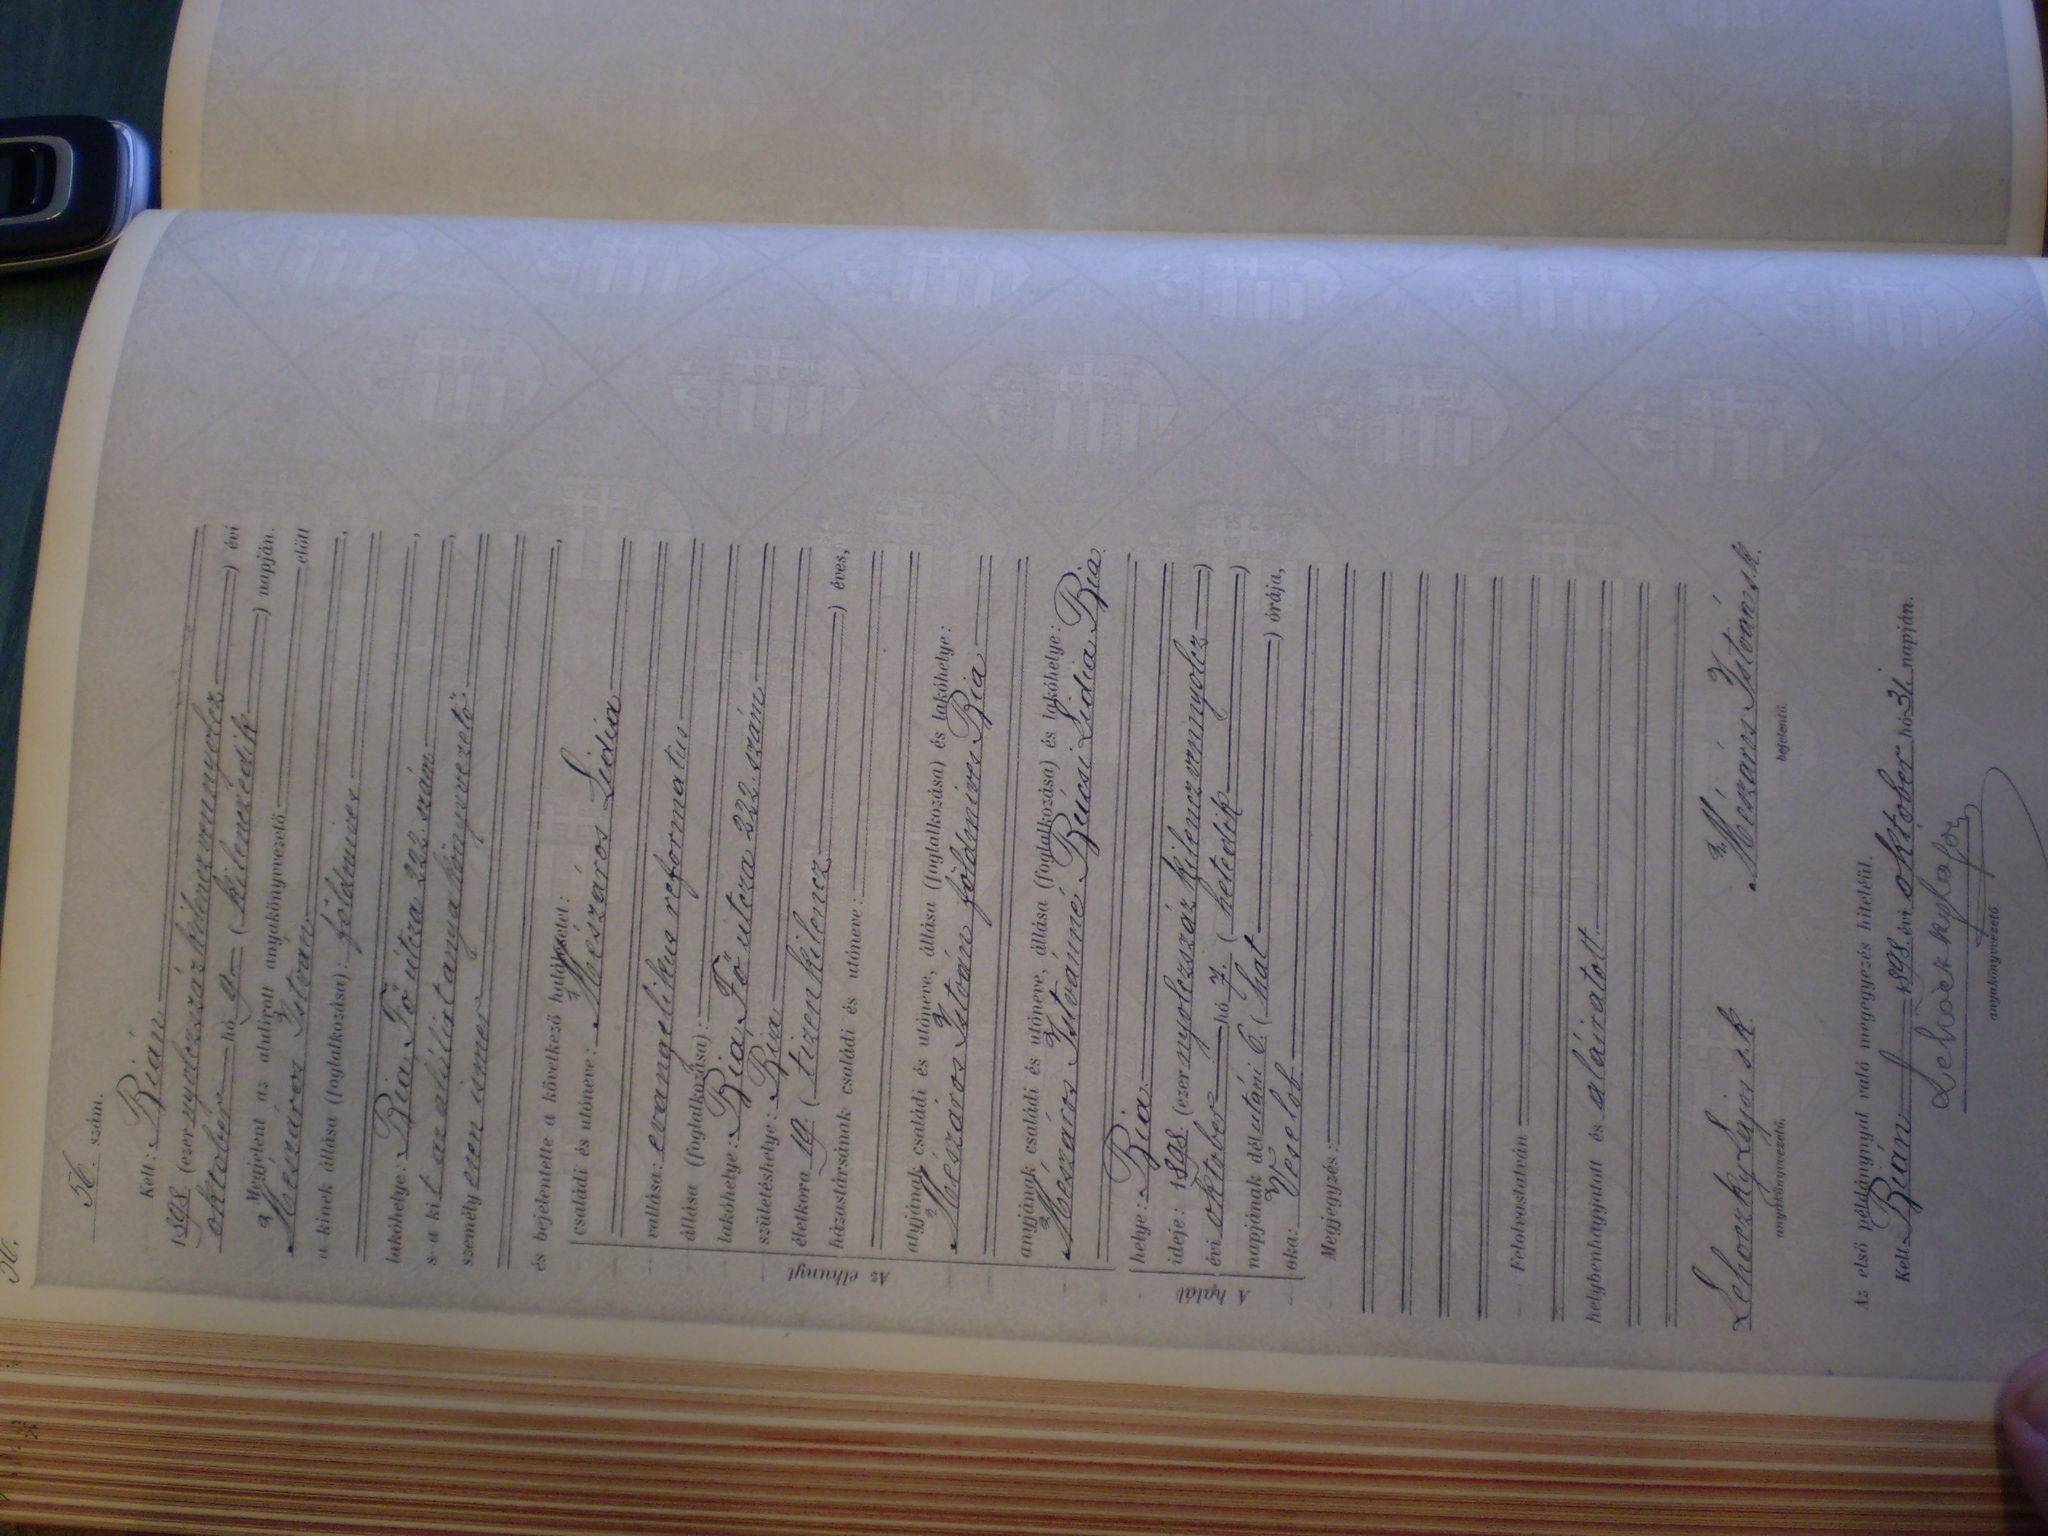 56. szám.
Kelt: Bián
1898 (ezernyolczszázkilenczvennyolcz) évi
oktober hó 9 (kilenczedik) napján.
Megjelent az alulirott anyakönyvvezető előtt
Mészáros István
a kinek állása (foglalkozása): földmives,
lakóhelye: Bia, Fő utcza 222. szám,
s a kit az alúlirt anyakönyvvezető
személyesen ismer
és bejelentette a következő halálesetet:
Az elhunyt
családi és utóneve: Mészáros Lidia
vallása: evangelikus reformatus
állása (foglalkozása):
lakóhelye: Bia, Fő utcza 222. szám
születéshelye: Bia
életkora 19. (tizenkilencz) éves,
házastársának családi és utóneve:
atyjának családi és utóneve, állása (foglalkozása) és lakóhelye:
Mészáros István földmives Bia
anyjának családi és utóneve, állása (foglalkozása) és lakóhelye:
Mészáros Istvánné Bucsi Lidia Bia
A halál
helye: Bia
ideje: 1898 (ezernyolczszázkilenczvennyolcz)
évi oktober hó 7. (hetedik)
napjának délutáni 6. (hat) órája,
oka:
Megjegyzés:
Felolvastatván
helybenhagyatott és aláiratott.
Lehoczky Lajos s.k. Mészáros István s.k.
anyakönyvvezető. bejelentő.
Az első példánynyal való megegyezés hiteléül.
Kelt Bián 1898 évi oktober hó 31. napján.
Lehoczky Lajos
anyakönyvvezető.